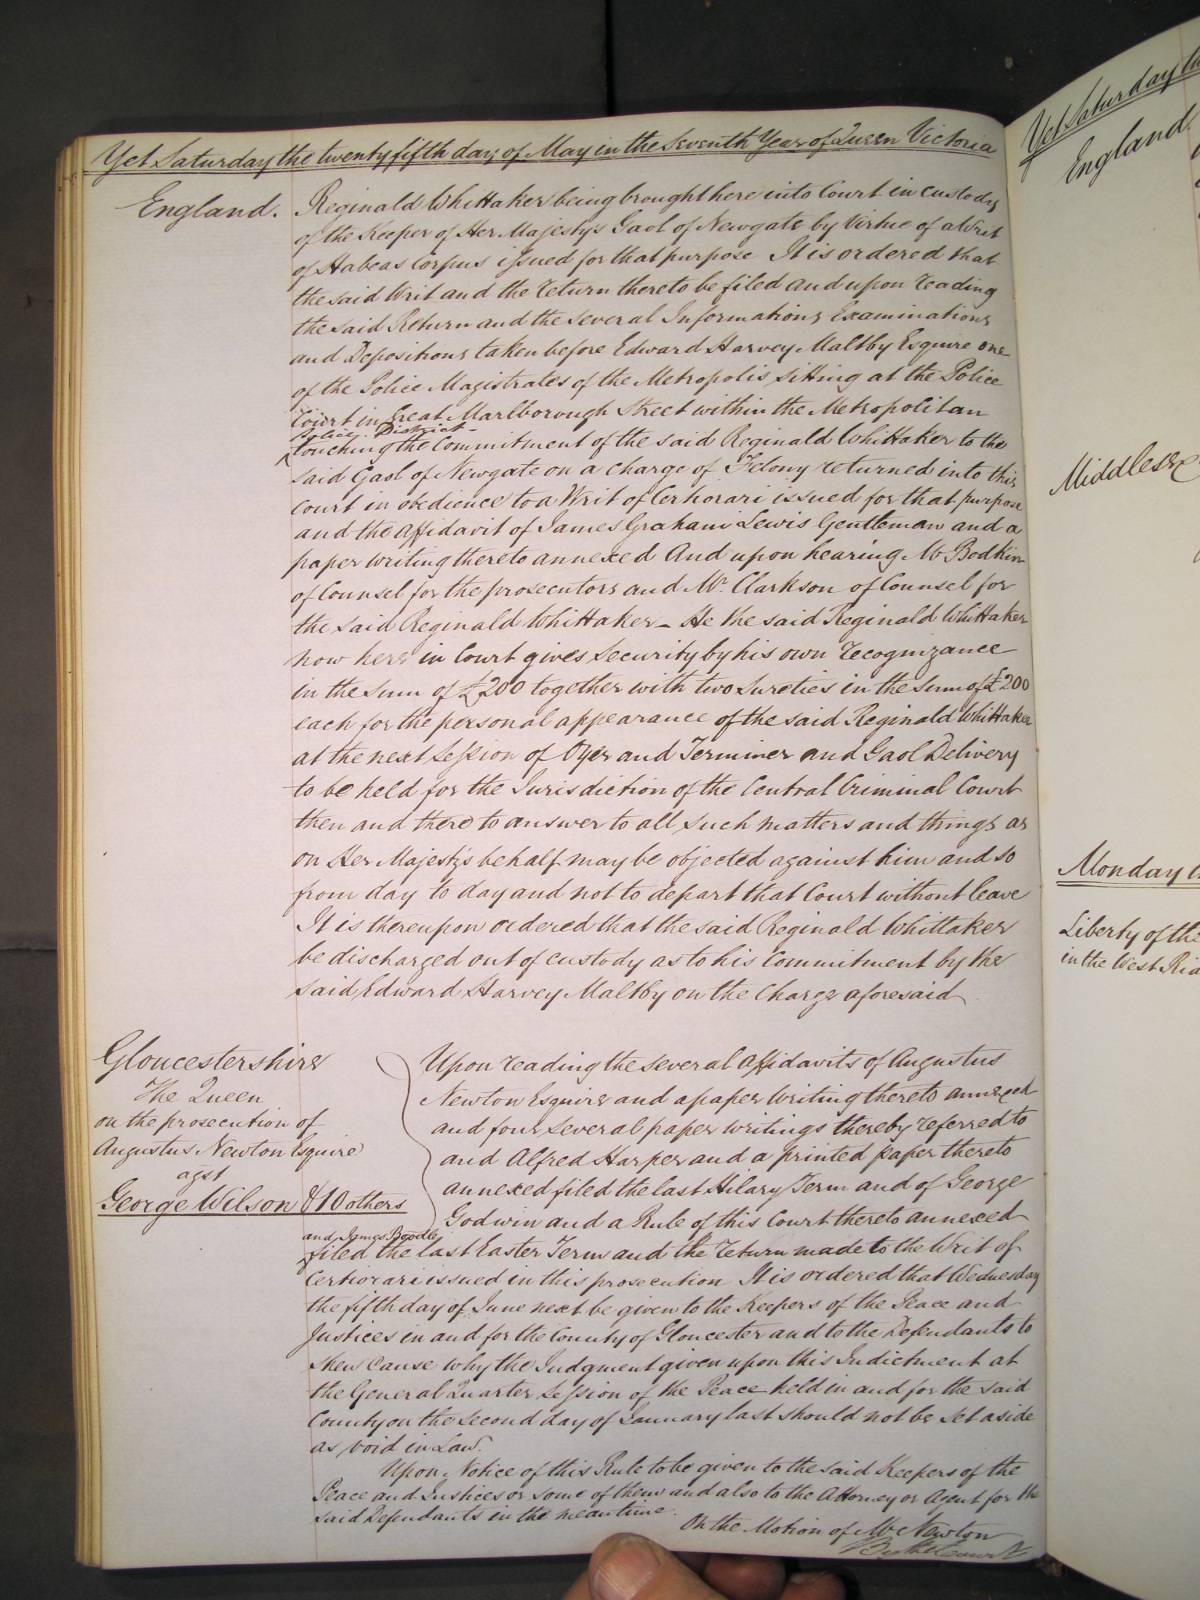 Yet Saturday the twenty fifth day of May in the Seventh Year of Queen Victoria
England.
Reginald Whittaker being brought here into Court in custody
of the Keeper of Her Majestys Gaol of Newgate by Virtue of a Writ
of Habeas Corpus issued for that purpose It is ordered that
the said Writ and the return thereto be filed and upon reading
the said Return and the several Informations Examinations
and Depositions taken before Edward Harvey Maltby Esquire one
of the Police Magistrates of the Metropolis sitting at the Police
Court in Great Marlborough Street within the Metropolitan
Police District
touching the Commitment of the said Reginald Whittaker to the
said Gaol of Newgate on a charge of Felony returned into this
Court in obedience to a Writ of Certiorari issued for that purpose
and the Affidavit of James Graham Lewis Gentleman and a
paper writing thereto annexed And upon hearing Mr Bodkin
of Counsel for the prosecutors and Mr. Clarkson of Counsel for
the said Reginald Whittaker - He the said Reginald Whittaker
now here in Court gives Security by his own recognizance
in the sum of £200 together with two Sureties in the sum of £200
each for the personal appearance of the said Reginald Whittaker
at the next Session of Oyer and Terminer and Gaol Delivery
to be held for the Jurisdiction of the Central Criminal Court
then and there to answer to all such matters and things as
on Her Majesty's behalf may be objected against him and so
from day to day and not to depart that Court without leave
It is thereupon ordered that the said Reginald Whittaker
be discharged out of custody as to his Commitment by the
said Edward Harvey Maltby on the Charge aforesaid
Gloucestershire
The Queen
on the prosecution of
Augustus Newton Esquire
agst
George Wilson & 10 others
Upon reading the several Affidavits of Augustus
Newton Esquire and a paper writing thereto annexed
and four several paper writings thereby referred to
and Alfred Harper and a printed paper thereto
annexed filed the last Hilary Term and of George
Godwin and a Rule of this Court thereto annexed
and James Boodle
filed the last Easter Term and the return made to the Writ of
Certiorari issued in this prosecution It is ordered that Wednesday
the fifth day of June next be given to the Keepers of the Peace and
Justices in and for the County of Gloucester and to the Defendants to
shew cause why the Judgment given upon this Indictment at
the General Quarter Session of the Peace held in and for the said
County on the second day of January last should not be set aside
as void in Law.
Upon Notice of this Rule to be given to the said Keepers of the
Peace and Justices or some of them and also to the Attorney or Agent for the
said Defendants in the meantime.
On the Motion of Mr Newton
By the Court
Yet Saturday
England.
Middlesex
Monday
Liberty of the
in the West